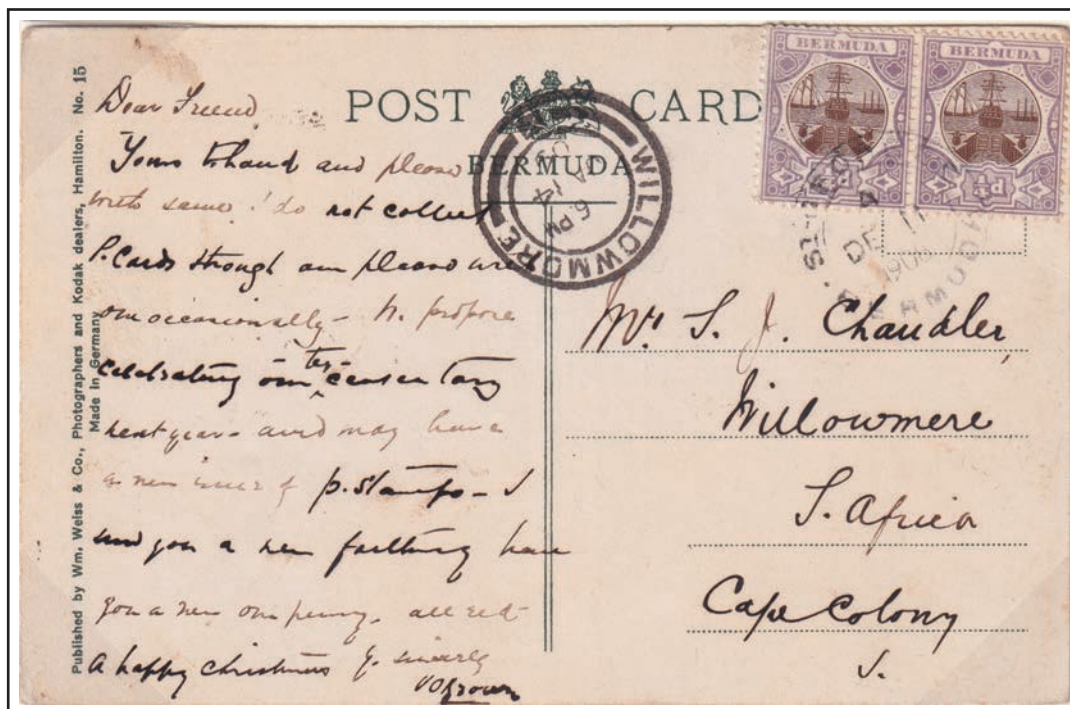 POST CARD
BERMUDA
Published by Wm. Weiss & Co., Photographers and Kodak dealers, Hamilton. No. 15
Made in Germany
BERMUDA
BERMUDA
WILLOWMORE
6.PM
DE 11
Dear Friend
Yours to hand and please
with same I do not collect
P. Cards though am pleased
one occasionally - propose
celebrating our ter-centenary
next year - and may have
a new issue of p. stamps - I
send you a new farthing have
you a new one penny. all red
A happy Christmas Y. sincerely
Mr. S. J. Chandler
Willowmere
S. Africa
Cape Colony
S.